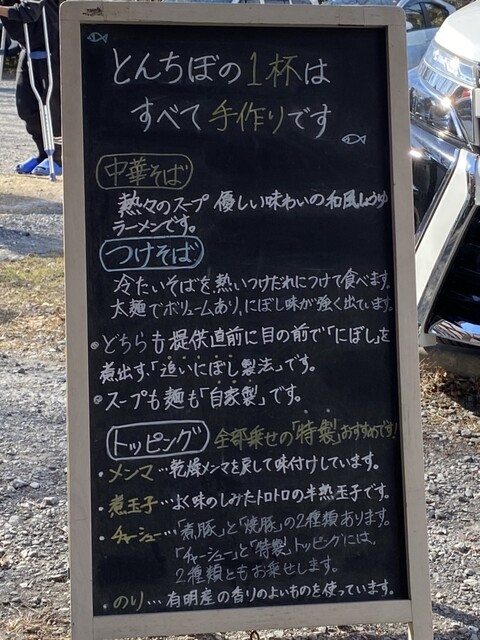 とんちぼの1杯は
すべて手作りです
中華そば
熱々のスープ 優しい味わいの和風しょうゆ
ラーメンです。
つけそば
冷たいそばを熱いつけだれにつけて食べます。
太麺でボリュームあり、にぼし味が強く出ています。
・どちらも提供直前に目の前で「にぼし」を
煮出す、「追いにぼし製法」です。
・スープも麺も「自家製」です。
トッピング 全部乗せの「特製」おすすめです!
・メンマ…乾燥メンマを戻して味付けしています。
・煮玉子…よく味のしみたトロトロの半熟玉子です。
・チャーシュー…「煮豚」と「焼豚」の2種類あります。
「チャーシュー」と「特製」トッピングには、
2種類ともお乗せします。
・のり…有明産の香りのよいものを使っています。